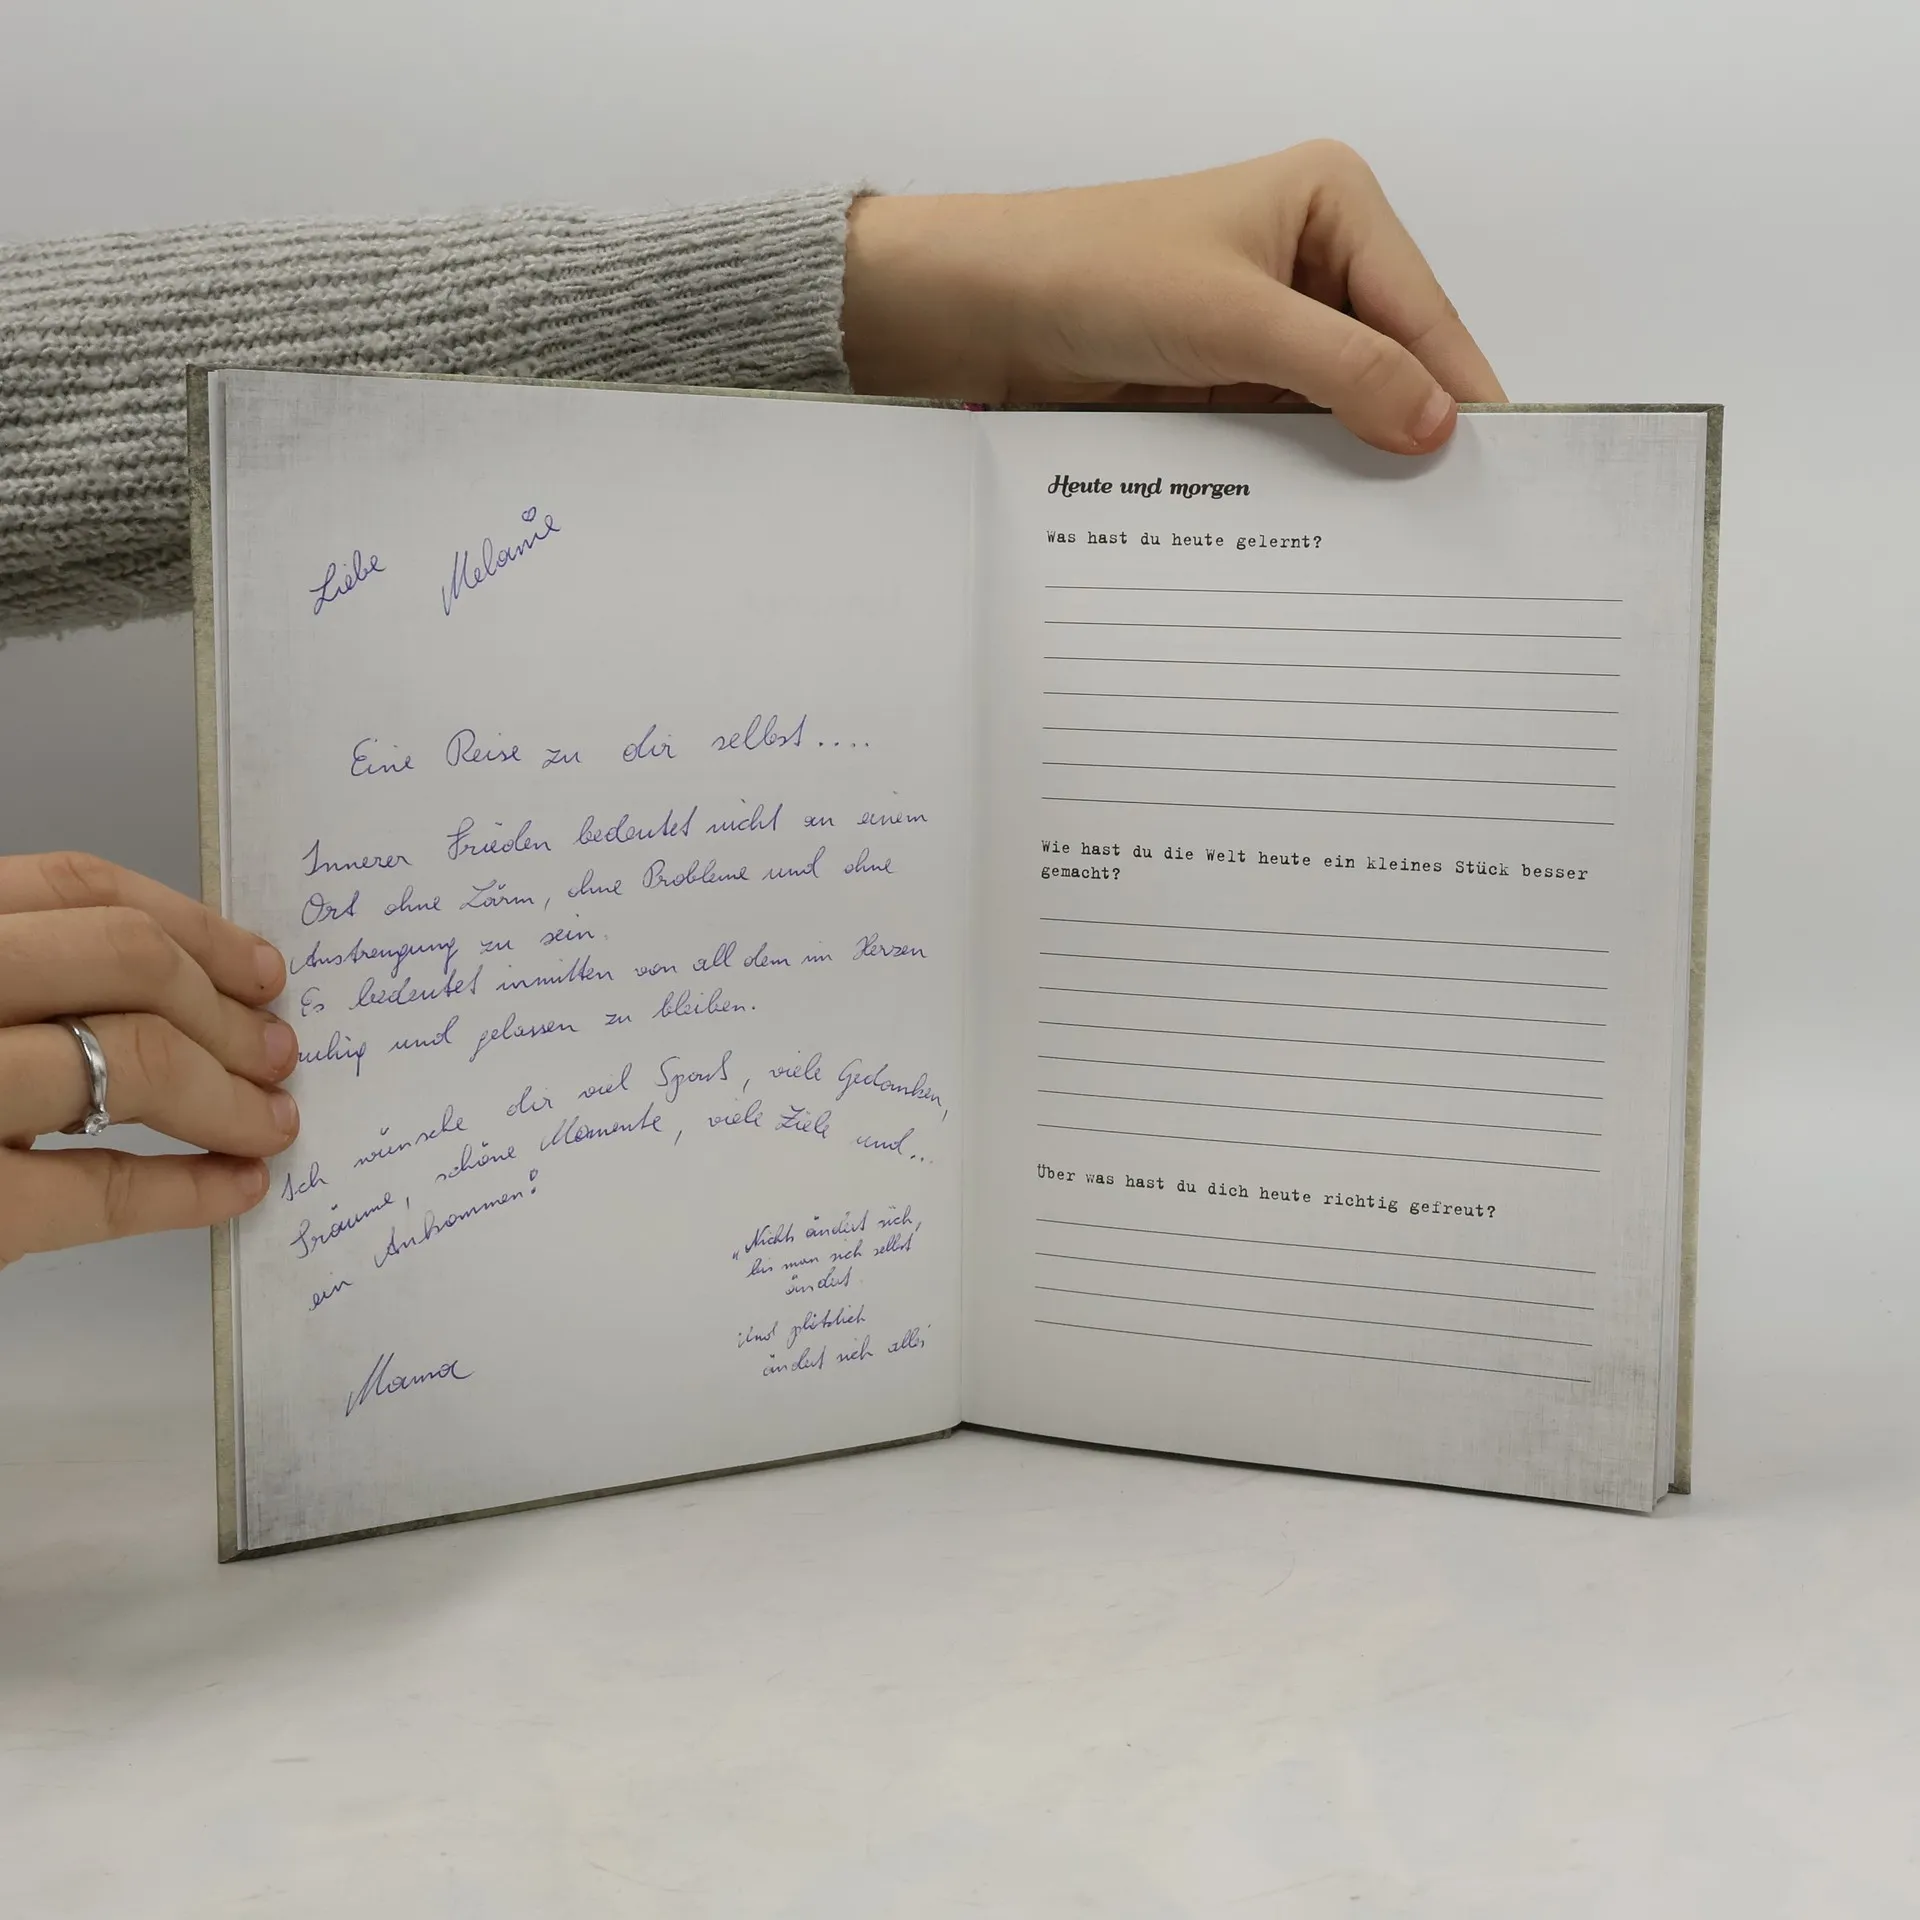 Liebe Melanie
Eine Reise zu dir selbst....
Innerer Frieden bedeutet nicht an einem
Ort ohne Lärm, ohne Probleme und ohne
Anstrengung zu sein.
Es bedeutet inmitten von all dem im Herzen
ruhig und gelassen zu bleiben.
Ich wünsche dir viel Spass, viele Gedanken,
Träume, schöne Momente, viele Ziele und...
ein Ankommen!
"Nichts ändert sich,
bis man sich selbst
ändert.
Und plötzlich
ändert sich alles"
Mama
Heute und morgen
Was hast du heute gelernt?
Wie hast du die Welt heute ein kleines Stück besser
gemacht?
Über was hast du dich heute richtig gefreut?